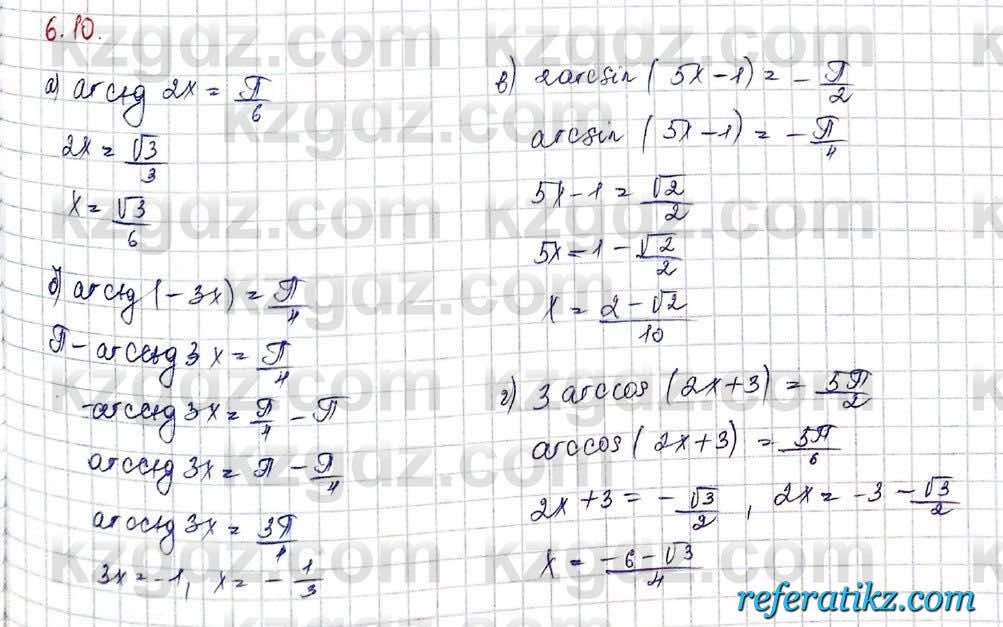 6.10.
а) arctg 2x = π/6
2x = √3/3
x = √3/6
б) arcctg (-3x) = π/4
π - arcctg 3x = π/4
-arcctg 3x = π/4 - π
arcctg 3x = π - π/4
arcctg 3x = 3π/4
3x = -1, x = -1/3
в) 2arcsin (5x-1) = -π/2
arcsin (5x-1) = -π/4
5x-1 = √2/2
5x = 1 - √2/2
x = (2-√2)/10
г) 3 arccos (2x+3) = 5π/2
arccos (2x+3) = 5π/6
2x+3 = -√3/2, 2x = -3 - √3/2
x = (-6-√3)/4
kzgdz.com
referatikz.com